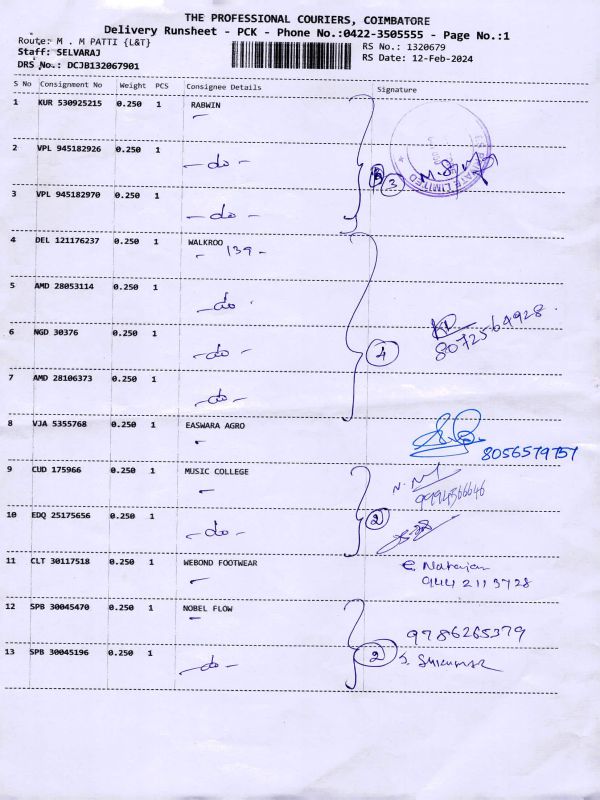 THE PROFESSIONAL COURIERS, COIMBATORE
Delivery Runsheet - PCK - Phone No.:0422-3505555 - Page No.:1
Route: M . M PATTI {L&T}
Staff: SELVARAJ
DRS No.: DCJB132067901
RS No.: 1320679
RS Date: 12-Feb-2024
S No Consignment No Weight PCS Consignee Details Signature
1 KUR 530925215 0.250 1 RABWIN
2 VPL 945182926 0.250 1 - do -
3 VPL 945182970 0.250 1 - do - 3
4 DEL 121176237 0.250 1 WALKROO
- 139 -
5 AMD 28053114 0.250 1 - do -
6 NGD 30376 0.250 1 - do - 4 8072564928
7 AMD 28106373 0.250 1 - do -
8 VJA 5355768 0.250 1 EASWARA AGRO
8056579757
9 CUD 175966 0.250 1 MUSIC COLLEGE
10 EDQ 25175656 0.250 1 - do - 2
11 CLT 30117518 0.250 1 WEBOND FOOTWEAR
9442113728
12 SPB 30045470 0.250 1 NOBEL FLOW
9786265379
13 SPB 30045196 0.250 1 - do - 2